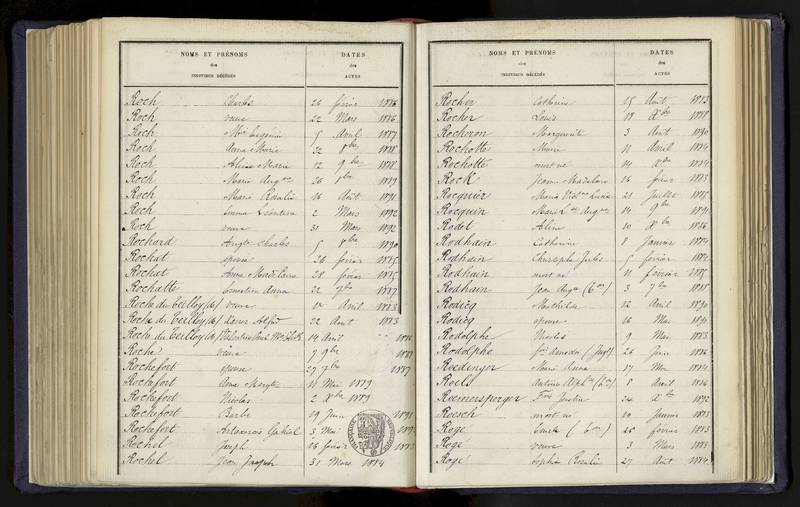 NOMS ET PRÉNOMS DATES
des des
INDIVIDUS DÉCÉDÉS ACTES
Roch Charles 26 février 1886
Roch veuve 22 Mars 1886
Roch 5 Avril 1887
Roch Anna Marie 22 8bre 1888
Roch Aline Marie 12 9bre 1888
Roch Marie Augne 26 1889
Roch Marie Rosalie 16 Août 1891
Roch Emma Léontine 2 Mars 1892
Roch veuve 31 Mars 1892
Rochard Charles 5 1890
Rochat épouse 26 février 1885
Rochat Anne Madelaine 28 février 1885
Rochatte Ernestine Anna 22 7bre 1887
Roche du Teilloy (de) veuve Avril 1883
Roche du Teilloy (de) Xavier Alfred 22 Août 1883
Roche du Teilloy (de) Paul 14 Avril
Roche veuve 7 9bre 1887
Rochefort épouse 27 7bre 1887
Rochefort Anne Margte 11 Mai 1889
Rochefort Nicolas 2 Xbre 1889
Rochefort Barbe 19 Juin 1891
Rochefort Gabriel 3 Mai
Rochel Joseph février 1883
Rochel Jean Joseph 31 Mars 1884
NOMS ET PRÉNOMS DATES
des des
INDIVIDUS DÉCÉDÉS ACTES
Rocher Catherine 15 Août 1883
Rocher Louis 18 Xbre 1888
Rocheron Marguerite 3 Août 1890
Rochotte Marie 11 Avril 1884
Rochotte mort né 14 1884
Rock Jeanne Madelaine 16 février 1883
Rocquier Marie 21 Juillet 1885
Rocquin Marie Augne 14 9bre 1891
Rodet Aline 10 Xbre 1886
Rodhain Catherine 8 Janvier 1884
Rodhain Christophe Jules 5 février
Rodhain mort né 11 février 1885
Rodhain Jean Augte 3 7bre 1888
Rodicq Mathilde 12 Avril 1890
Rodicq épouse 16 Mai 1890
Rodolphe Nicolas 9 Mai 1883
Rodolphe Amédée 26 Juin 1886
Roedinger Marie Anna 17 Mai 1884
Roels Antoine 8 Avril 1886
Roemersperger Justin 24 Xbre 1892
Roesch mort né 10 Janvier 1883
Rogé 26 février 1883
Rogé veuve 3 Mars 1883
Rogé Sophie Rosalie 27 Août 1884